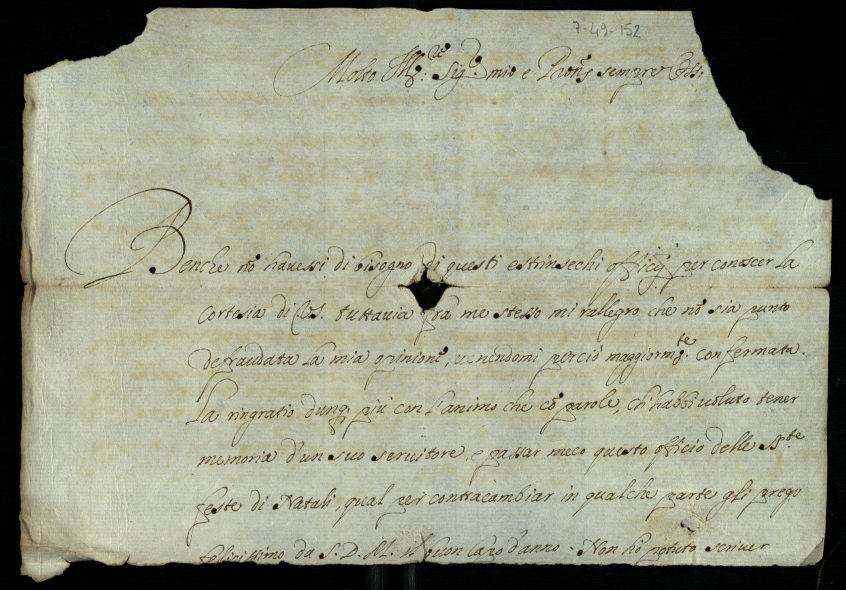 7-49-152
Molto Mg.co Sig.r mio e Pron sempre Oss:
Benche nō havessi di bisogno di questi estrinsechi officij per conoscer la
Cortesia di V.S. tuttavia frà me stesso mi rallegro che nō sia punto
defraudata la mia opinione, venendomi perciò maggiorm.te confermata.
La ringratio dunq più con l'animo che cō parole, ch'habbi voluto tener
memoria d'un suo servitore, e passar meco questo officio delle S.te
feste di Natali, qual per contracambiar in qualche parte gli prego
felicissimo da S. D. M. il buon Capo d'anno. Non hò potuto scriver